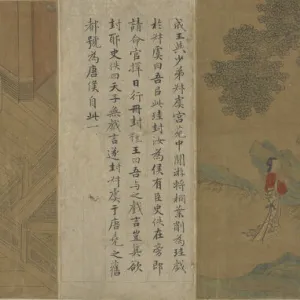 成王共少弟叔虞宮苑中閒游將桐葉削為珪戲
於叔虞曰吾吕此珪封汝為侯有臣史佚在旁即
請命官擇日行冊封王曰吾與之戲言豈真欲
封耶史佚曰天子無戲言遂封叔虞于唐堯之舊
都號為唐侯自此一